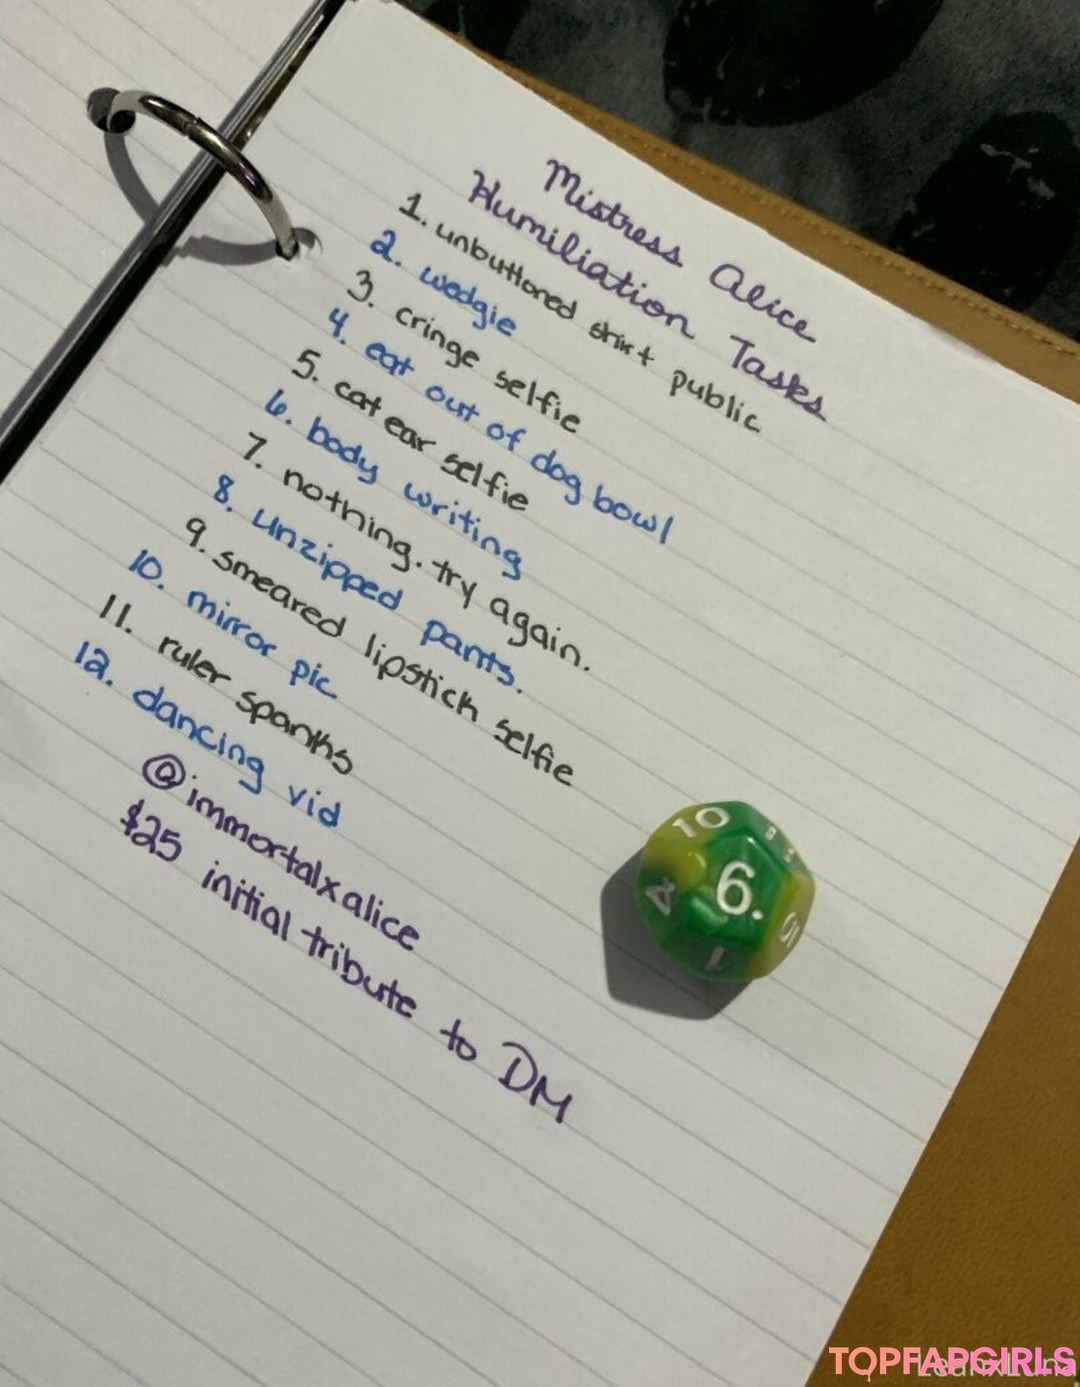 Mistress Alice
Humiliation Tasks
1. unbuttoned shirt public
2. wedgie
3. cringe selfie
4. eat out of dog bowl
5. cat ear selfie
6. body writing
7. nothing. try again.
8. unzipped pants.
9. smeared lipstick selfie
10. mirror pic
11. ruler spanks
12. dancing vid
@immortalxalice
$25 initial tribute to DM
10
6.
4
1
TOPFAPGIRLS